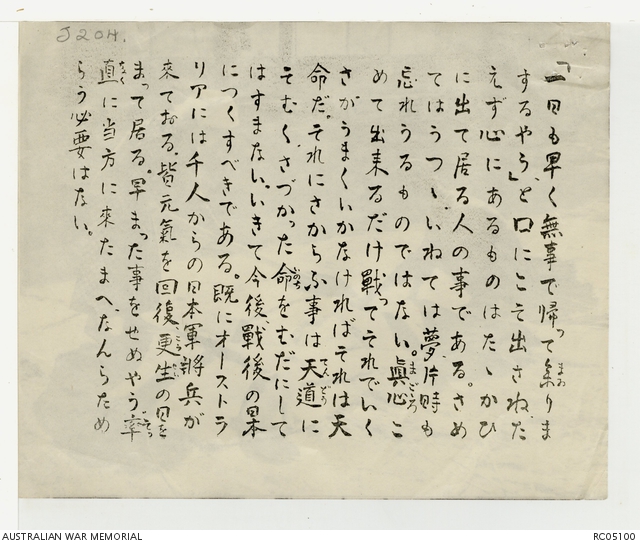 J204.
「一日も早く無事で帰って参りま
するやう」と口にこそ出さね、た
えず心にあるものはたゝかひ
に出て居る人の事である。さめ
てはうつゝ、いねては夢、片時も
忘れうるものではない。眞心こ
めて出来るだけ戦ってそれでいく
さがうまくいかなければそれは天
命だ。それにさからふ事は天道に
そむく、さづかった命をむだにして
はすまない。いきて今後、戰後の日本
につくすべきである。既にオーストラ
リアには千人からの日本軍將兵が
來ておる。皆元氣を回復、更生の日を
まって居る。早まった事をせめやう率
直に当方に來たまへ、なんらため
らう必要はない。
AUSTRALIAN WAR MEMORIAL
RC05100